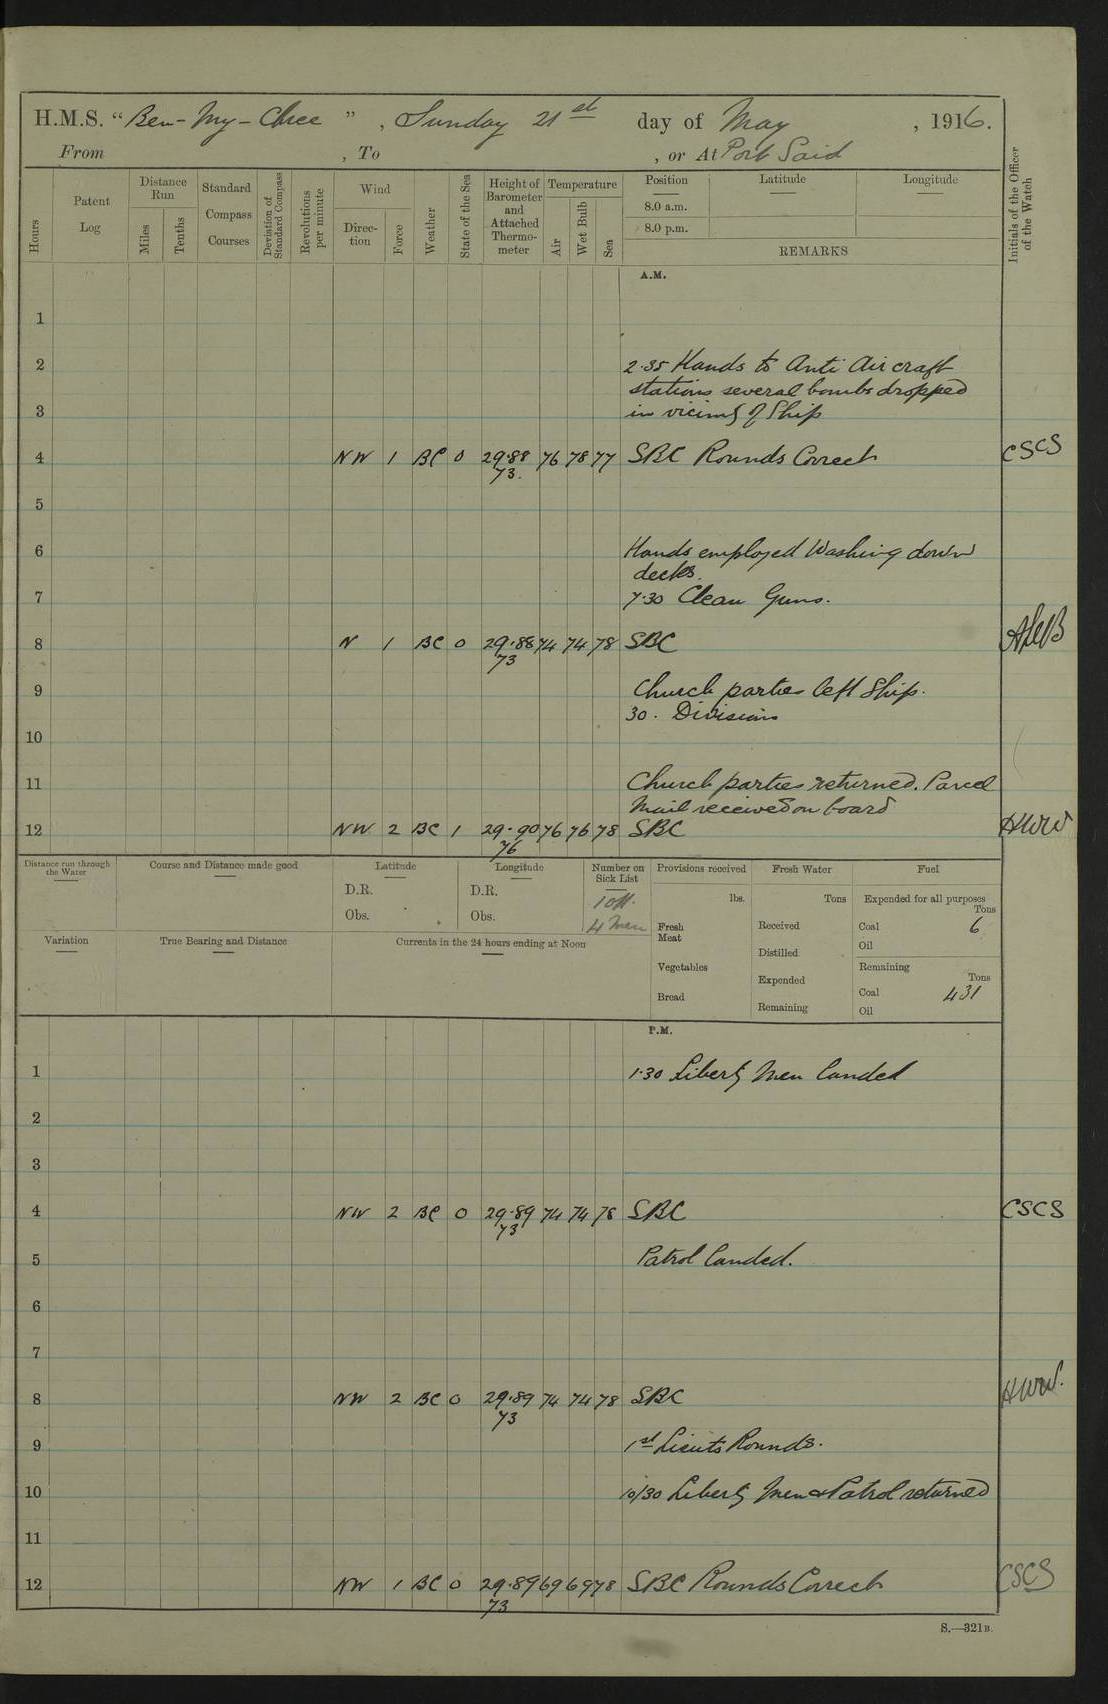 H.M.S. “Ben-My-Chree”, Sunday 21st day of May, 1916.
From , To , or At Port Said
Hours
Patent Log
Distance Run
Miles
Tenths
Standard Compass Courses
Deviation of Standard Compass
Revolutions per minute
Wind
Direction
Force
Weather
State of the Sea
Height of Barometer and Attached Thermometer
Temperature
Air
Wet Bulb
Sea
Position
Latitude
Longitude
8.0 a.m.
8.0 p.m.
REMARKS
Initials of the Officer of the Watch
A.M.
1
2 2.35 Hands to Anti Aircraft
stations several bombs dropped
3 in vicinity of Ship
4 NW 1 BC 0 29.88 76 78 77 SBC Rounds Correct CSCS
73.
5
6 Hands employed Washing down
decks.
7 7.30 Clean Guns.
8 N 1 BC 0 29.88 74 74 78 SBC
73
9 Church parties left Ship.
30. Divisions
10
11 Church parties returned. Parcel
Mail received on board
12 NW 2 BC 1 29.90 76 76 78 SBC HWW
76
Distance run through the Water
Course and Distance made good
Latitude
D.R.
Obs.
Longitude
D.R.
Obs.
Number on Sick List
1 Off.
4 Men
Provisions received
lbs.
Fresh Meat
Vegetables
Bread
Fresh Water
Tons
Received
Distilled
Expended
Remaining
Fuel
Expended for all purposes
Tons
Coal 6
Oil
Remaining
Tons
Coal 431
Oil
Variation
True Bearing and Distance
Currents in the 24 hours ending at Noon
P.M.
1 1.30 Liberty Men landed
2
3
4 NW 2 BC 0 29.89 74 74 78 SBC CSCS
73
5 Patrol landed.
6
7
8 NW 2 BC 0 29.89 74 74 78 SBC HWW.
73
9 1st Lieuts Rounds.
10 10/30 Liberty Men & Patrol returned
11
12 NW 1 BC 0 29.89 69 69 78 SBC Rounds Correct CSCS
73
S.—321B.